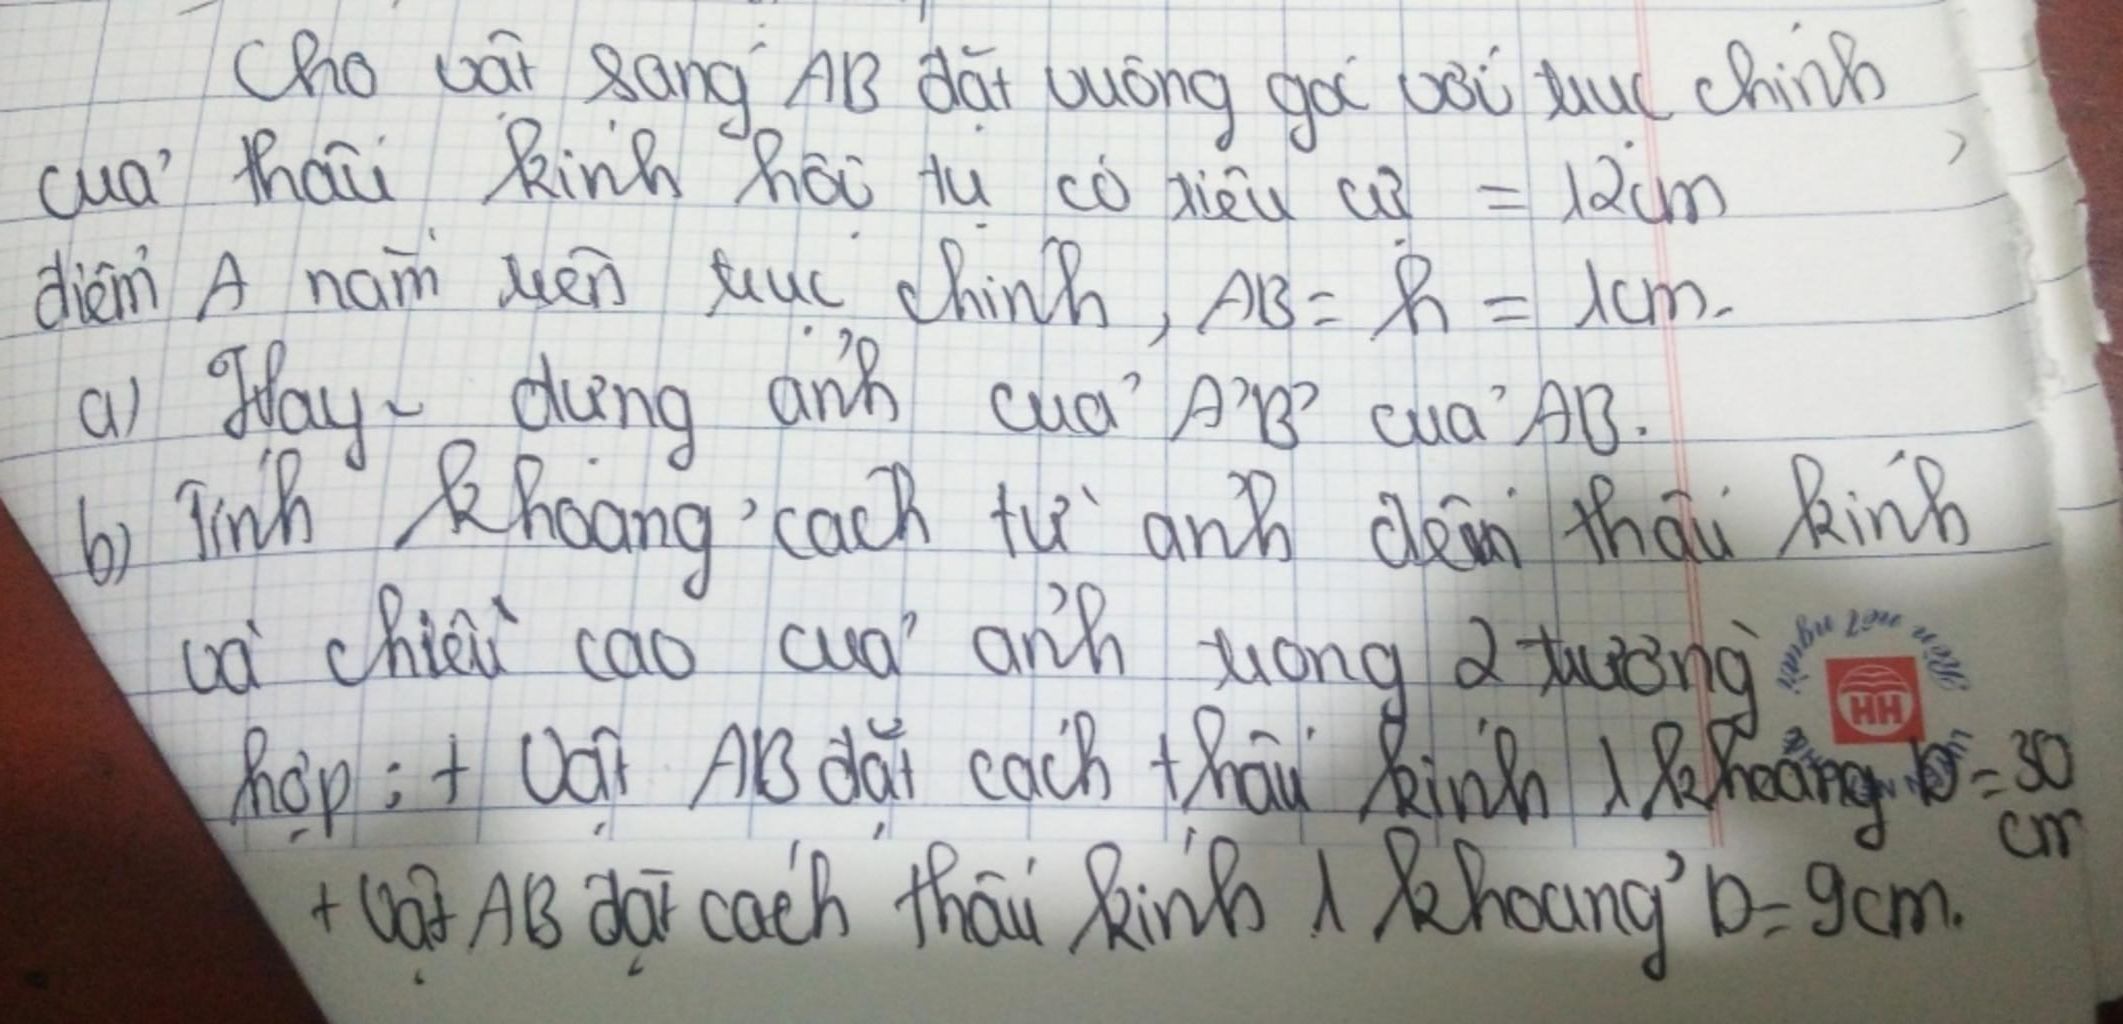 Cho vật sáng AB đặt vuông góc với trục chính
của thấu kính hội tụ có tiêu cự = 12cm
điểm A nằm trên trục chính, AB = h = 1cm.
a) Hãy dựng ảnh của A'B' của AB.
b) Tính khoảng cách từ ảnh đến thấu kính
và chiều cao của ảnh trong 2 trường
hợp: + Vật AB đặt cách thấu kính 1 khoảng D = 30
cm
+ Vật AB đặt cách thấu kính 1 khoảng D = 9cm.
HH